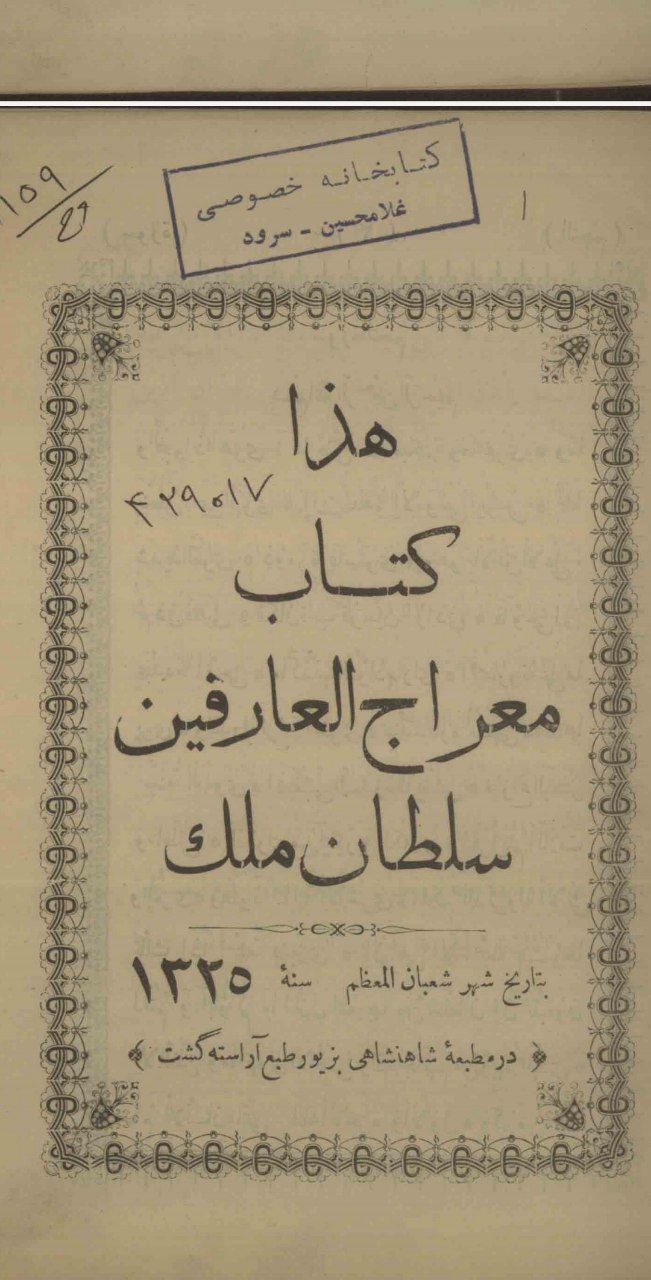 كتابخانه خصوصی
غلامحسین - سرود
۱
۱۵۹
هذا
۴۲۹۰۱۷
كتاب
معراج العارفين
سلطان ملك
بتاريخ شهر شعبان المعظم سنهٔ ١٣٢٥
﴿ در مطبعهٔ شاهنشاهی بزیور طبع آراسته گشت ﴾